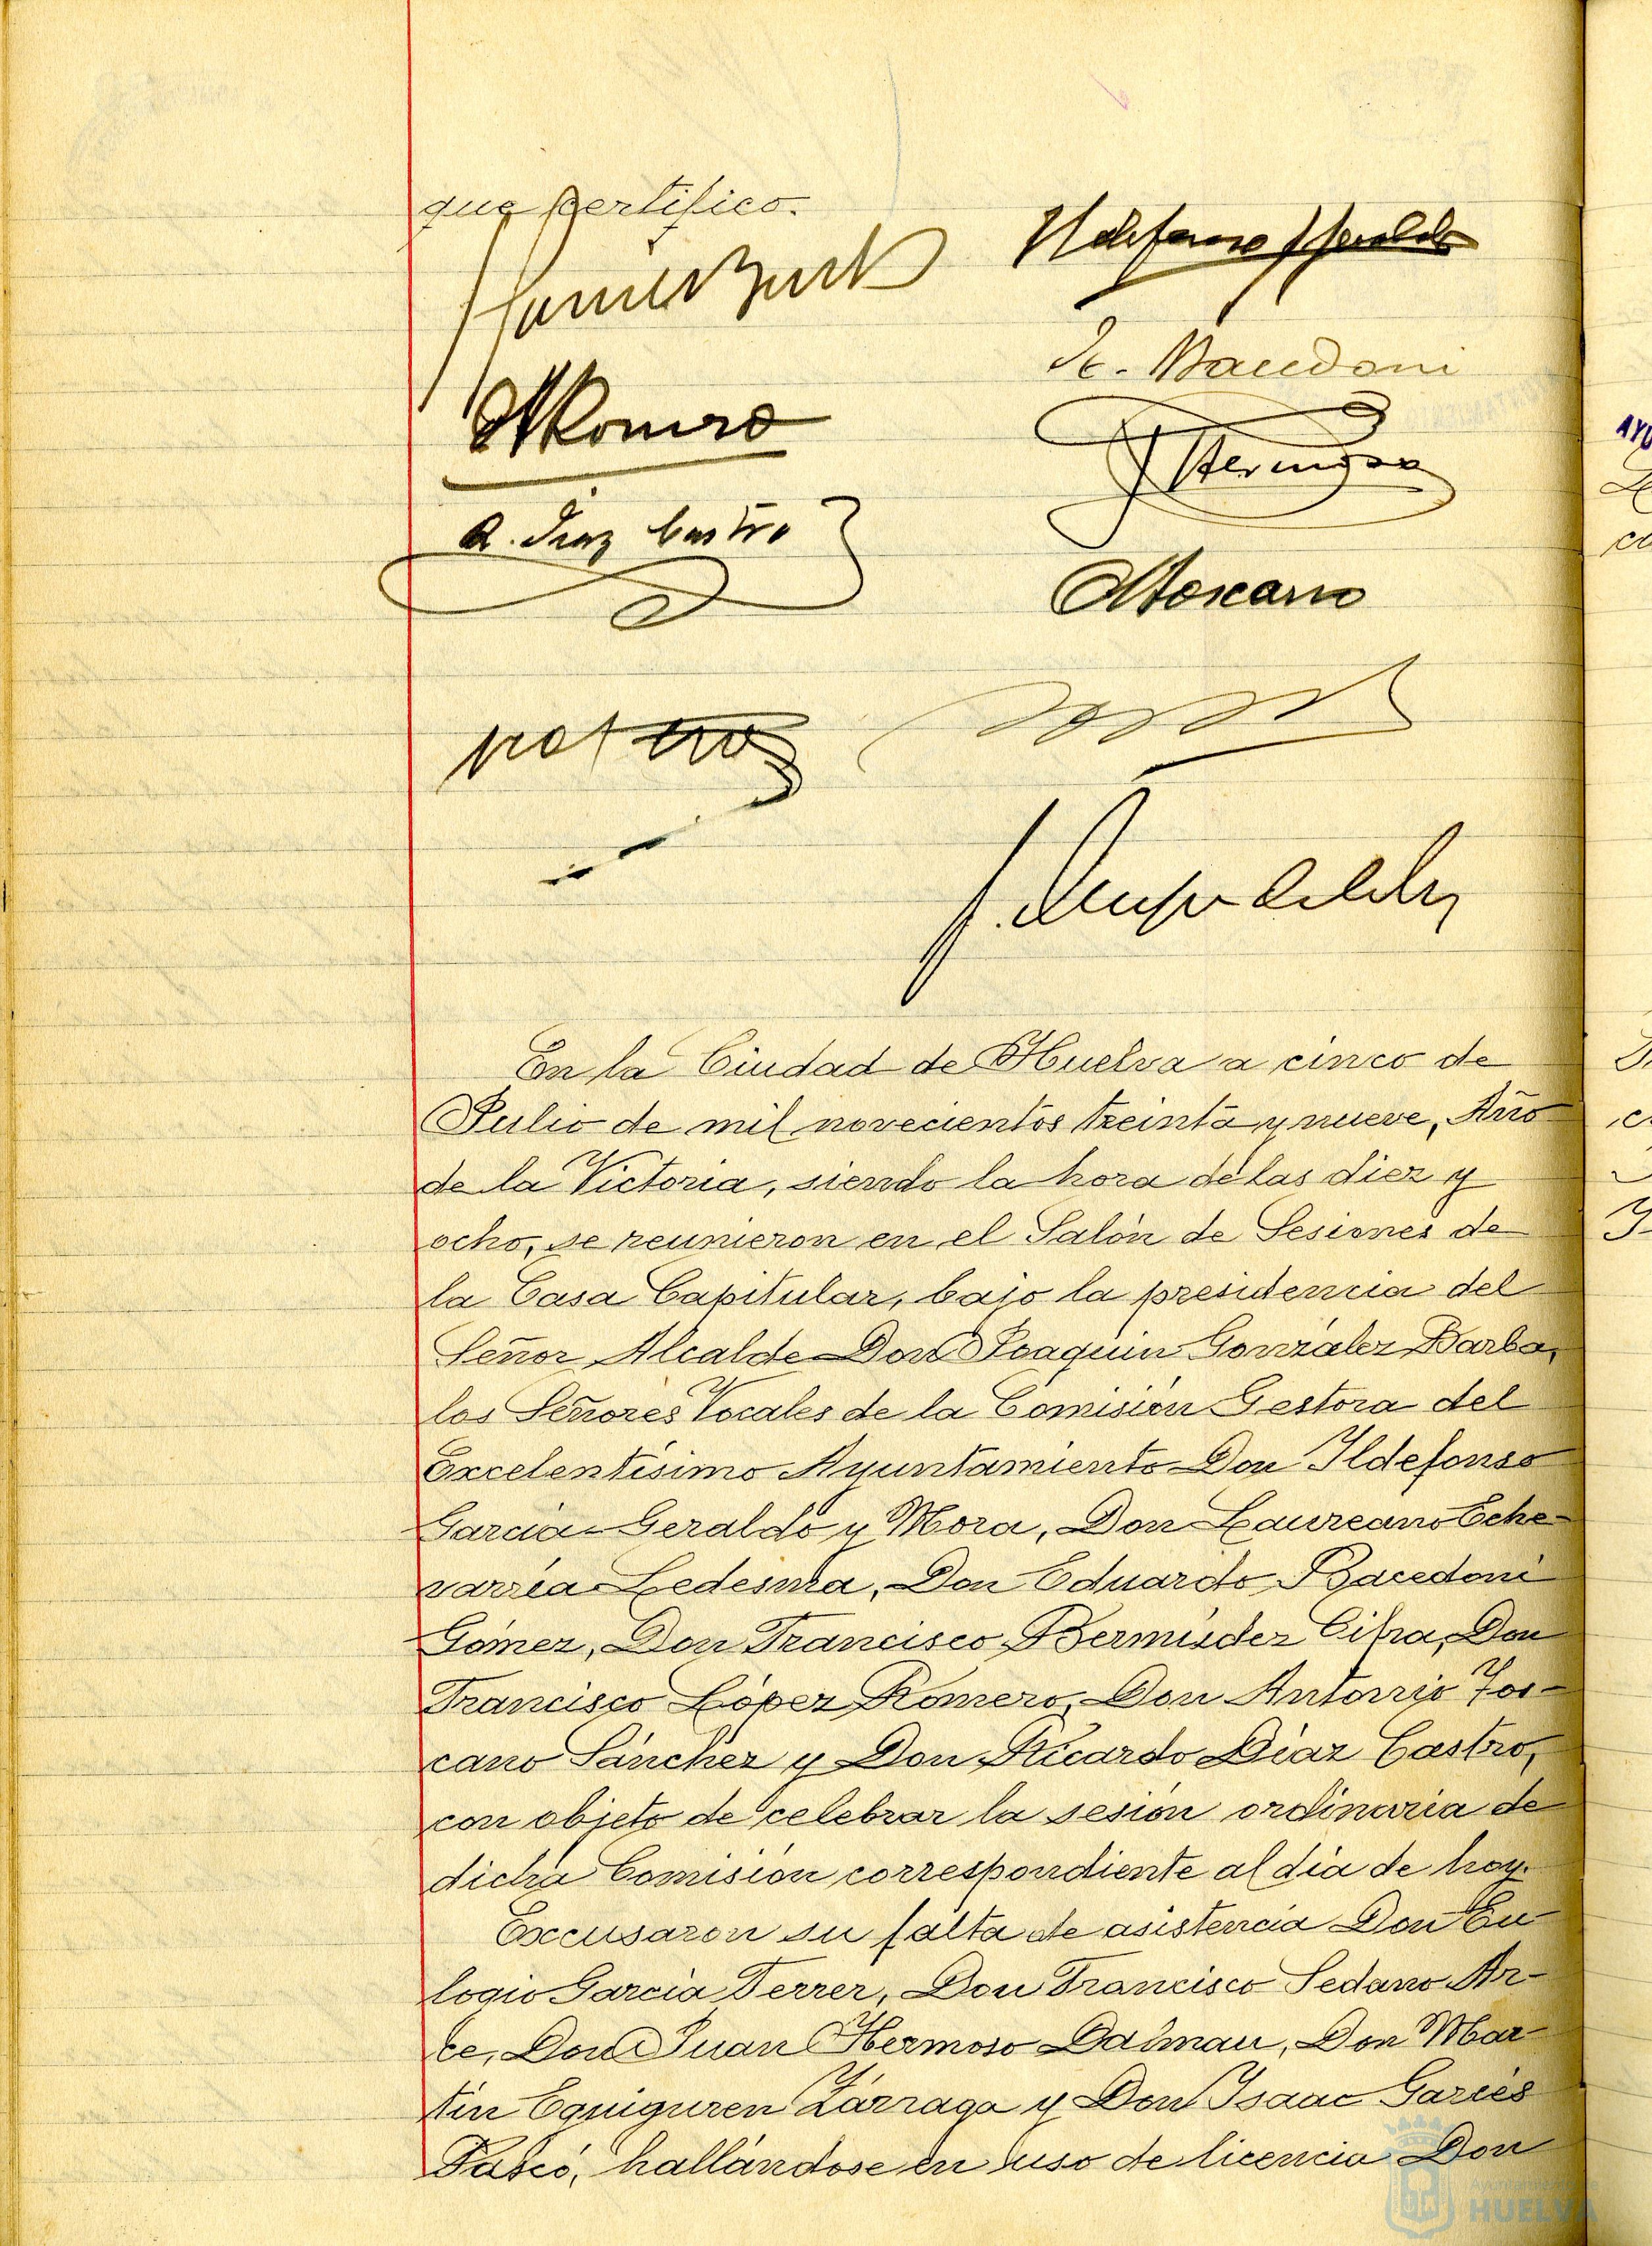 que certifico.
Ildefonso Geraldo
E. Bacedoni
Romero
J Hermoso
R. Diaz Castro
A Toscano
En la Ciudad de Huelva a cinco de
Julio de mil novecientos treinta y nueve, Año
de la Victoria, siendo la hora de las diez y
ocho, se reunieron en el Salón de Sesiones de
la Casa Capitular, bajo la presidencia del
Señor Alcalde Don Joaquin González Barba,
los Señores Vocales de la Comisión Gestora del
Excelentísimo Ayuntamiento Don Ildefonso
Garcia-Geraldo y Mora, Don Laureano Eche-
varría Ledesma, Don Eduardo Bacedoni
Gómez, Don Francisco Bermúdez Cifra, Don
Francisco López Romero, Don Antonio Tos-
cano Sánchez y Don Ricardo Díaz Castro,
con objeto de celebrar la sesión ordinaria de
dicha Comisión correspondiente al día de hoy.
Excusaron su falta de asistencia Don Eu-
logio García Ferrer, Don Francisco Sedano Ar-
ce, Don Juan Hermoso Dalmau, Don Mar-
tín Eguiguren Zárraga y Don Isaac Garcés
hallándose en uso de licencia Don
Ayuntamiento de
HUELVA